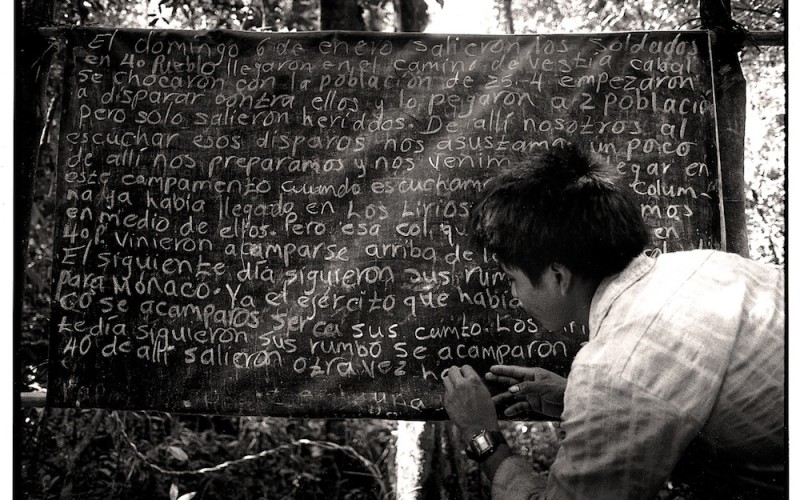 El domingo 6 de enero salieron los Soldados
en 4º Pueblo llegaron en el camino de vestia cabal
se chocaron con la población de 25.-4 empezaron
a disparar contra ellos y lo pegaron a 2 població
pero solo salieron heriddos. De allí nosotros al
escuchar esos disparos nos asustamo un poco
de allí nos preparamos y nos venim egar en
este campamento cuando escucham Colum-
na ya había llegado en Los Lirios mos
en medio de ellos. Pero esa col. qu en
4º P. Vinieron acamparse arriba de l
El siguiente día siguieron sus rum
para Mónaco. Ya el ejército que habi
co se acamparos serca sus camto. Los iri
te dia siguieron sus rumbo se acamparon
40 de allí salieron otra vez ha
una